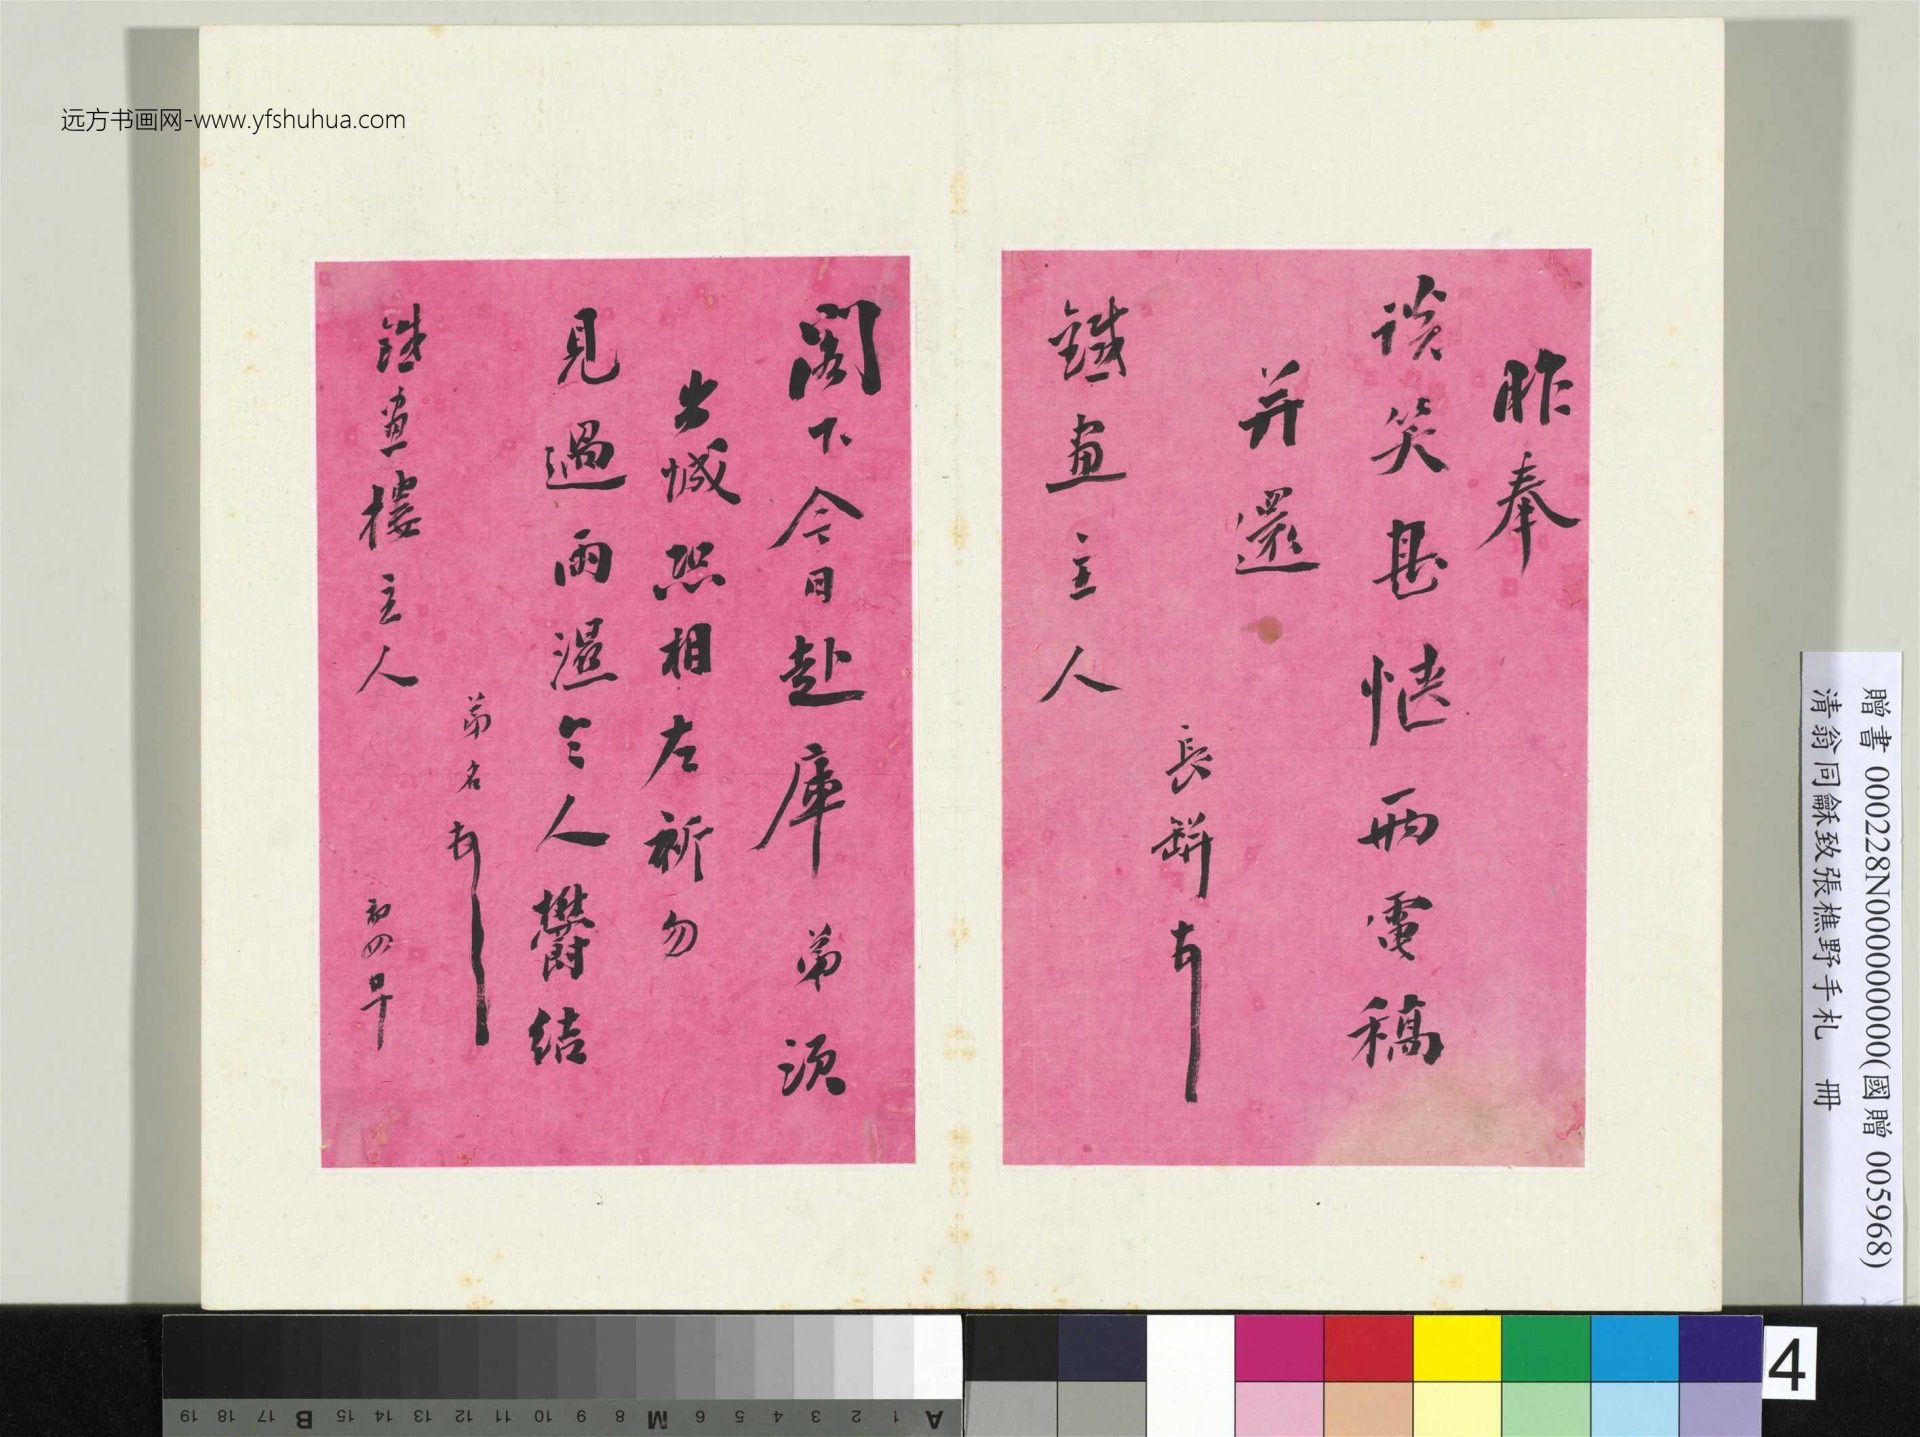 远方书画网-www.yfshuhua.com
昨奉
談笑甚愜兩電稿
并還
長缾
鐵畫主人
閣下今日赴庫弟須
出城恐相左祈勿
見過雨濕令人鬱結
弟名
鐵畫樓主人
初四早
贈書 000228N000000000(國贈 005968)
清翁同龢致張樵野手札 冊
A 1 2 3 4 5 6 M 8 9 10 11 12 13 14 15 B 17 18 19
4